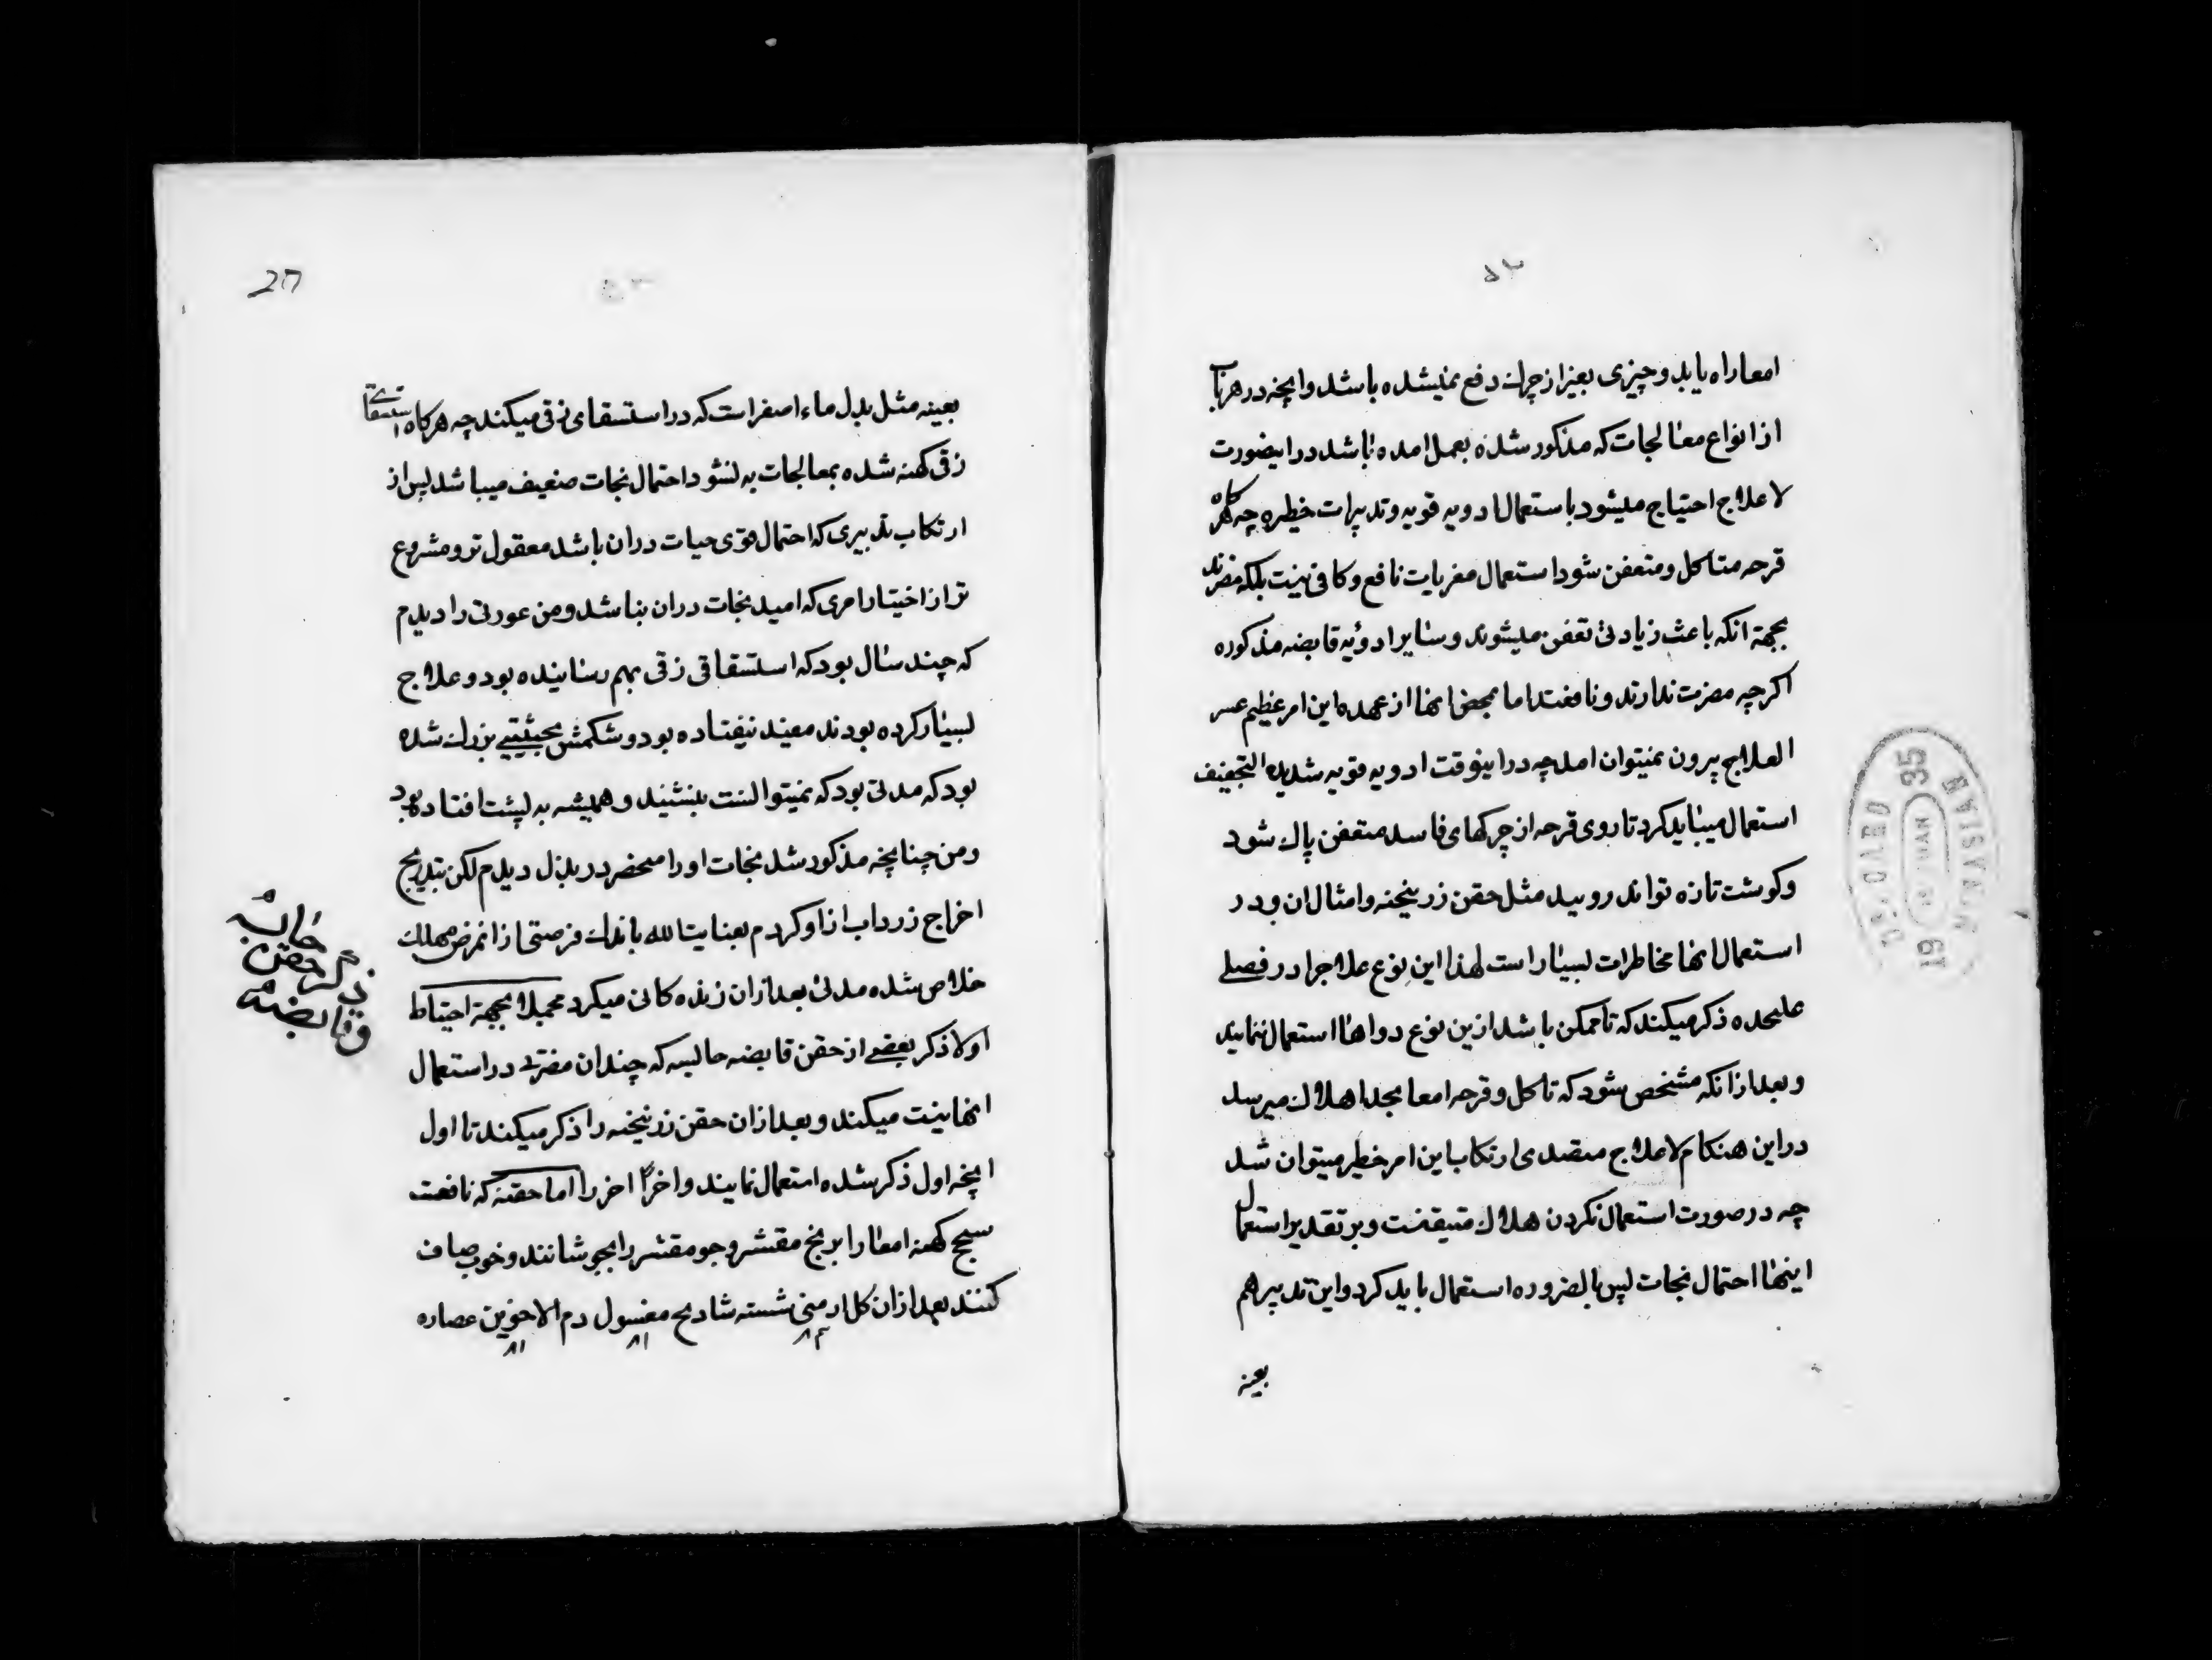 ۵۲
امعا راه یابد و چیزی بغیر از چرک دفع نمیشده باشد و انچه در هر باب
از انواع معالجات که مذکور شده بعمل امده باشد در اینصورت
لاعلاج احتیاج میشود باستعمال ادویه قویه و تدبیرات خطیره چه هرکاه
قرحه متاکل و متعفن شود استعمال مغریات نافع و کافی نیست بلکه مضرند
بجهة انکه باعث زیادتی تعفن میشوند و سایر ادویه قابضه مذکوره
اکرچه مضرت ندارند و نافعند اما بمحض انها از عهده این امر عظیم عسر
العلاج بیرون نمیتوان امد چه در اینوقت ادویه قویه شدیده التجفیف
استعمال میباید کرد تا روی قرحه از چرکهای فاسد متعفن پاک شود
و کوشت تازه تواند رویید مثل حقن زرنیخیه و امثال ان و در
استعمال انها مخاطرات بسیار است لهذا این نوع علاج را در فصلی
علیحده ذکر میکند که تا ممکن باشد ازین نوع دواها استعمال ننمایند
و بعد از انکه مشخص شود که تاکل و قرحه امعا بحد اهلاک میرسد
در این هنکام لاعلاج متصدی ارتکاب این امر خطیر میتوان شد
چه در صورت استعمال نکردن هلاک متیقنست و بر تقدیر استعمال
اینها احتمال نجات پس بالضروره استعمال باید کرد و این تدبیر هم
بعینه
27
بعینه مثل بدل ماء اصفر است که در استسقای زقی میکنند چه هرکاه استسقای
زقی کهنه شده بمعالجات به نشود احتمال نجات ضعیف میباشد پس از
ارتکاب تدبیری که احتمال قوی حیات در ان باشد معقول تر و مشروع
تر از اختیار امری که امید نجات در ان نباشد و من عورتی را دیدم
که چند سال بود که استسقاقی زقی بهم رسانیده بود و علاج
بسیار کرده بودند مفید نیفتاده بود و شکمش بحیثیتی بزرک شده
بود که مدتی بود که نمیتوانست بنشیند و همیشه به پشت افتاده بود
و من چنانچه مذکور شد نجات او را منحصر در بذل دیدم لکن بتدریج
اخراج زرداب از او کردم بعنایت الله باندک فرصتی از انمرض مهلک
خلاص شده مدتی بعد از ان زنده کانی میکرد مجملا بجهة احتیاط
اولا ذکر بعضی از حقن قابضه حابسه که چندان مضرتی در استعمال
انها نیست میکند و بعد از ان حقن زرنیخیه را ذکر میکند تا اول
انچه اول ذکر شده استعمال نمایند و اخرا اخر را اما حقنه که نافعست
سحج کهنه امعا را برنج مقشر و جو مقشر را بجوشانند و خوب صاف
کنند بعد از ان کل ارمنی شسته شادنج مغسول دم الاخوین عصاره
حابسه
ذکر حقن
و قابضه